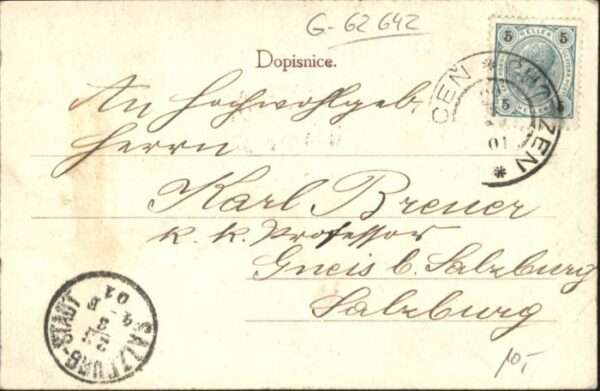 G-62642
Dopisnice.
5 HELLER 5
5 5
An Hochwohlgeb.
Herrn
Karl Breuer
k. k. Professor
Gneis b. Salzburg
Salzburg
ZEN
01
SALZBURG-STADT
01
10,-